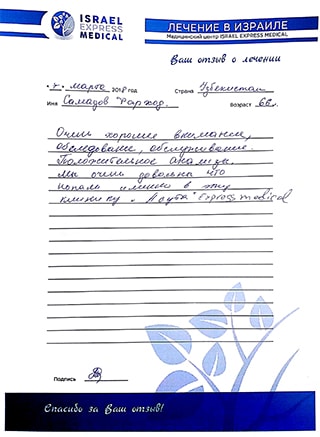 ISRAEL
EXPRESS
MEDICAL
ЛЕЧЕНИЕ В ИЗРАИЛЕ
Медицинский центр ISRAEL EXPRESS MEDICAL
Ваш отзыв о лечении
"7" марта 2018 год Страна Узбекистан
Имя Самадов Фарход. Возраст 66 л.
Очень хорошие внимание,
обследование, обслуживание.
Положительное анализы.
Мы очень довольны что
попали именно в эту
клинику "Асута" Express medical
Подпись
Спасибо за Ваш отзыв!